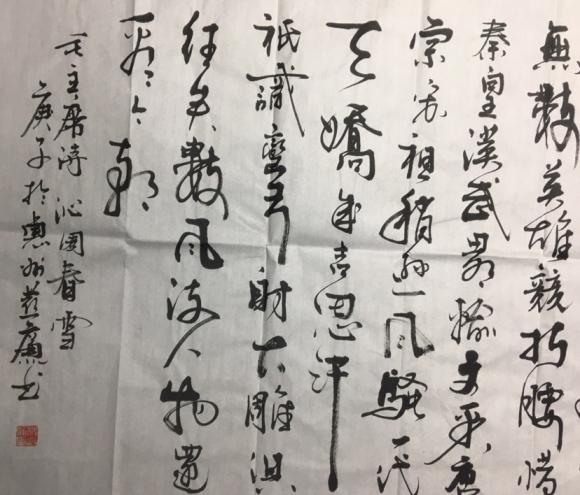 無數英雄競折腰惜
秦皇漢武略輸文采唐
宗宋祖稍遜風騷一代
天驕成吉思汗
祇識彎弓射大雕俱
往矣數風流人物還
看今朝
毛主席詩沁園春雪
庚子於惠州